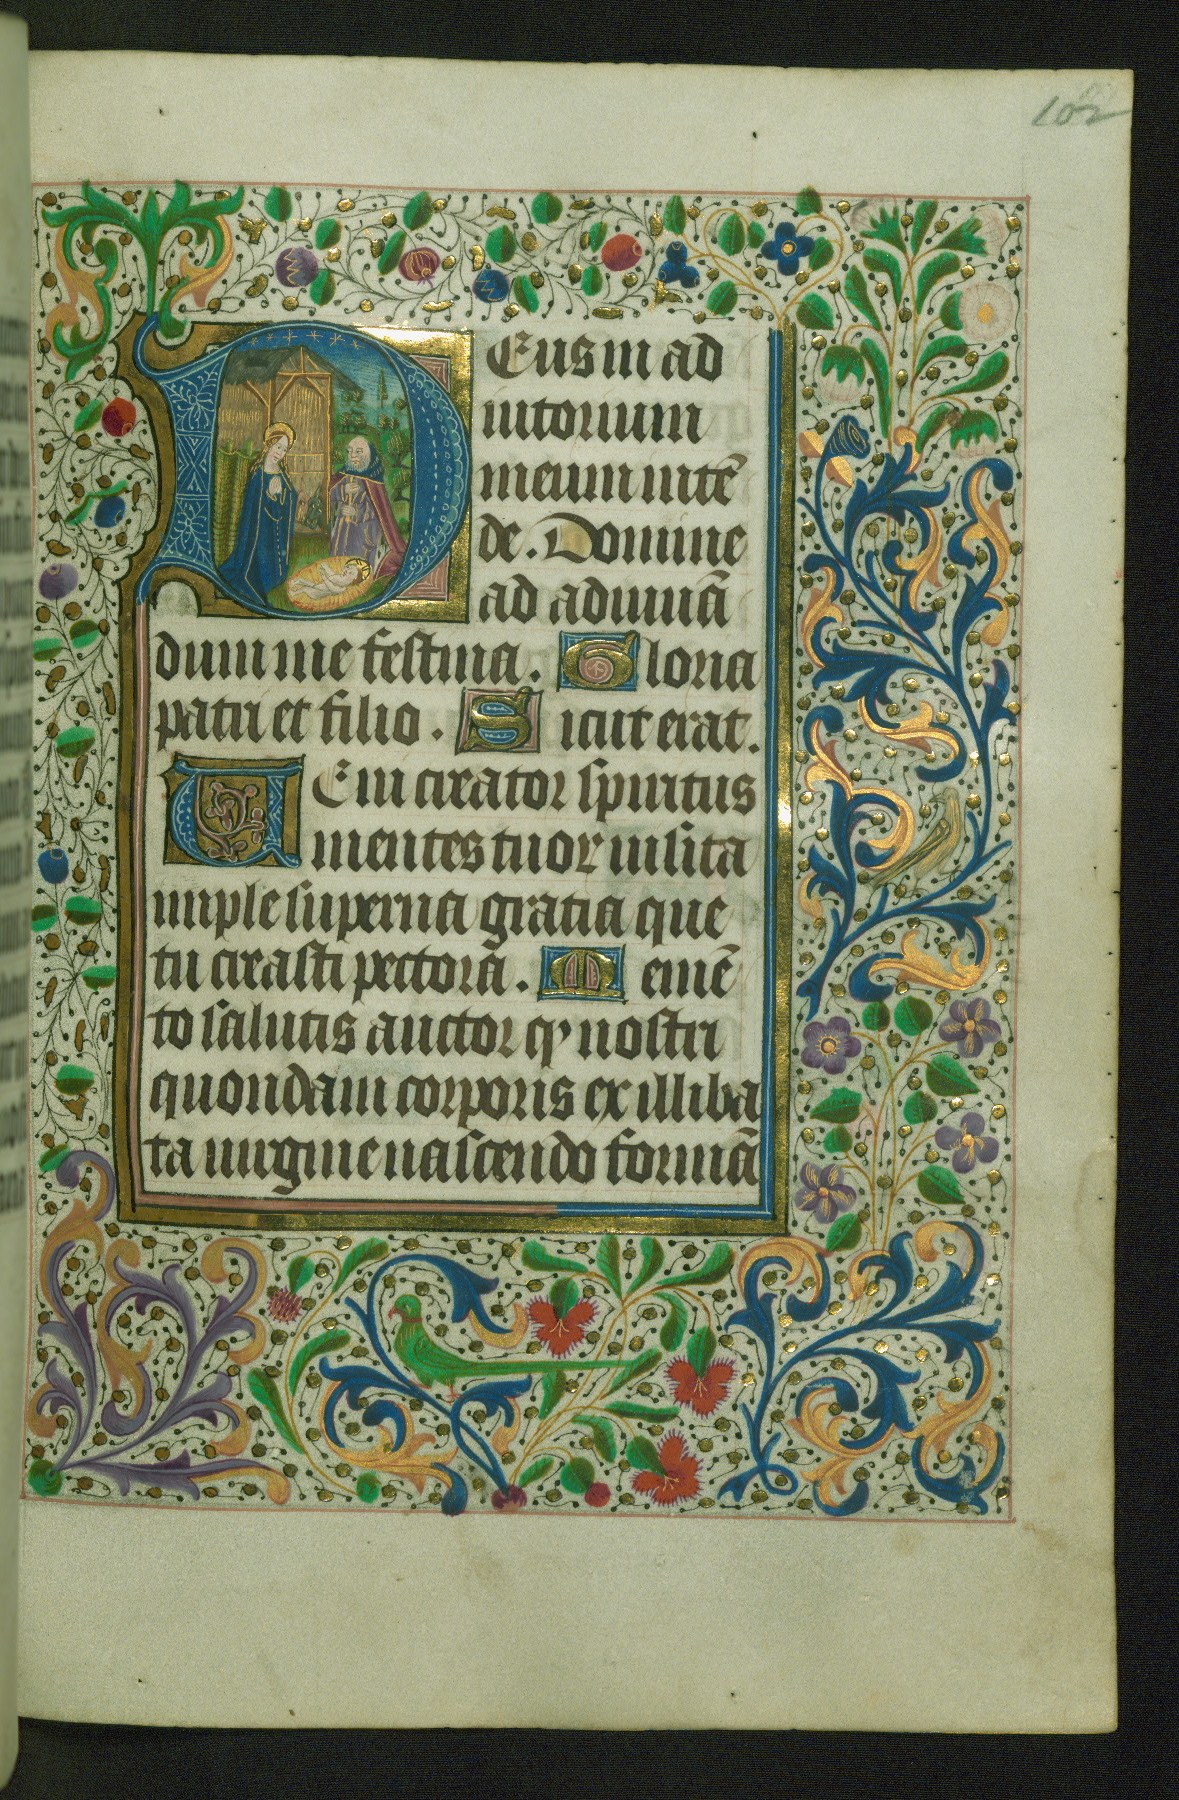 102
Deus in ad
iutorium
meum intē
de. Domine
ad adiuuā
dum me festina. Gloria
patri et filio. Sicut erat.
Ueni creator spiritus
mentes tuor visita
imple superna gratia que
tu creasti pectora. Memē
to salutis auctor qꝫ nostri
quondam corporis ex illiba
ta uirgine nascendo formā